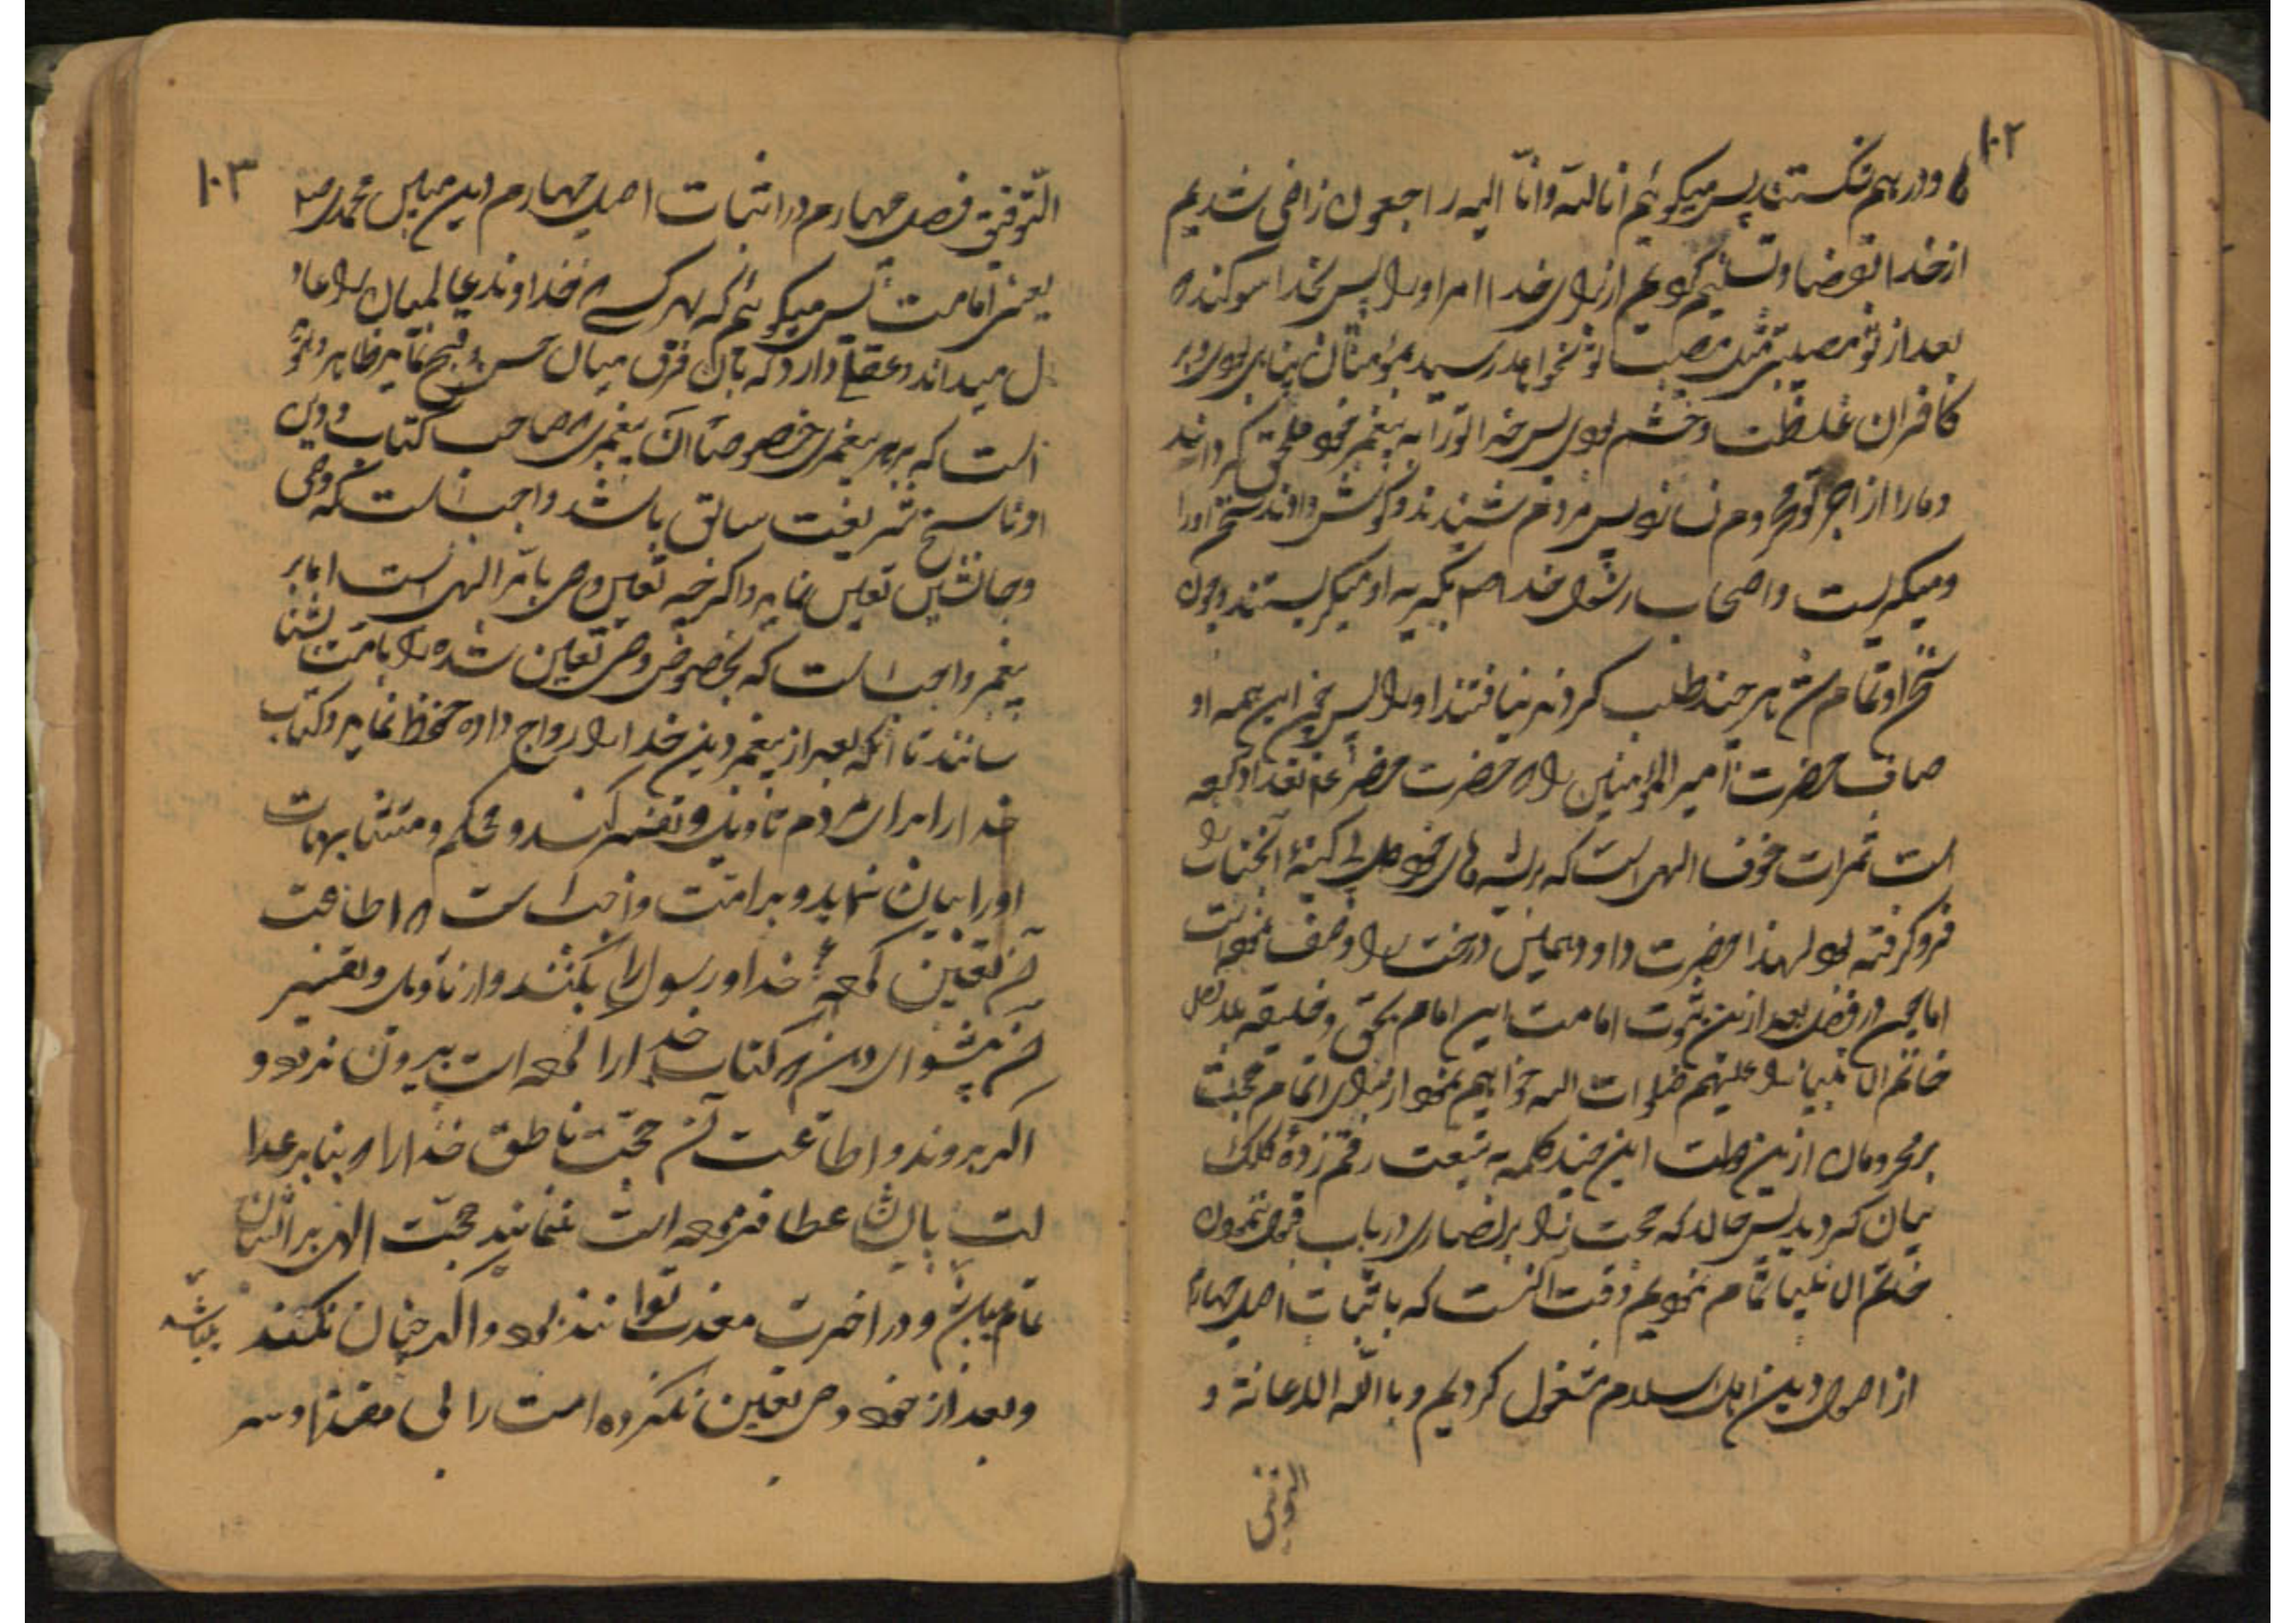 ۱۰۲
و درهم شکستند پس میکوئیم انا لله وانّا الیه راجعون راضی شدیم
از خدا بقضا و تسلیم کردیم از برای خدا امر او را پس بخدا سوکند که
بعد از تو مصیبتی مثل مصیبت تو نخواهد رسید بمؤمنان پناهی بودی و بر
کافران غلظت و خشم بودی پس خدا تو را به پیغمبر خود ملحق کرداند
و ما را از اجر تو محروم نسازد پس مردم شنیدند و کوش دادند سخن او را
و میکریست و اصحاب رسول خدا صم بکریه او میکریستند و چون
سخن او تمام شد هر چند طلب کردند نیافتند او را پس این همه او
صاف حضرت امیر المؤمنین را که حضرت خضر تعداد کرده
است ثمرات خوف الهی است که ریشه های خود در سینهٔ آنجناب را
فرو کرفته بود لهذا حضرت داود همین درخت را وصف نموده است
اما چون در فصل بعد ازین ثبوت امامت این امام بحق و خلیفه بلا فصل
خاتم الانبیا را علیهم صلوات الله خواهیم نمود از برای اتمام حجت
بر محرومان ازین دولت این چند کلمه به تبعیت رقم زدهٔ کلک
بیان کردید پس حال که حجت را بر نصاری در باب قبول نمودن
خاتم الانبیا تمام نمودیم وقت آنست که باثبات اصل چهارم
از اصول دین اهل اسلام مشغول کردیم و بالله الاعانة و
التوفیق
۱۰۳
التّوفیق فصل چهارم در اثبات اصل چهارم دین مبین محمدی ص
یعنی امامت پس میکوئیم که هر کسی که خداوند عالمیان را عاد
ل میداند و عقلی دارد که بآن فرق میان حسن و قبح نماید ظاهر و
است که بر هر پیغمبری خصوصا آن پیغمبری که صاحب کتاب و دین
او ناسخ شریعت سابق باشد واجب است که وصی
و جانشین تعیین نماید و اکرچه تعیین وصی بامر الهی است اما بر
پیغمبر واجب است که بخصوص وصی تعیین شده را بامت بشنا
سانند تا آنکه بعد از پیغمبر دین خدا را رواج داده حفظ نماید و کتاب
خدا را برای مردم تأویل و تفسیر کند و محکم و متشابهات
او را بیان نماید و بر امت واجب است که اطاعت
آن تعیین کردهٔ خدا و رسول را بکنند و از تأویل و تفسیر
آن پیشوای دین که کتاب خدا را کرده است بیرون نروند و
اکر بروند و اطاعت آن حجّت ناطق خدا را که بنابر عدا
لت بایشان عطا فرموده است ننمایند حجّت الهی بر ایشان
تمام میباشد و در آخرت معذب توانند بود و اکر چنان نکنند میباشد
و بعد از خود وصی تعیین نکرده امت را بی مقتدا و سر